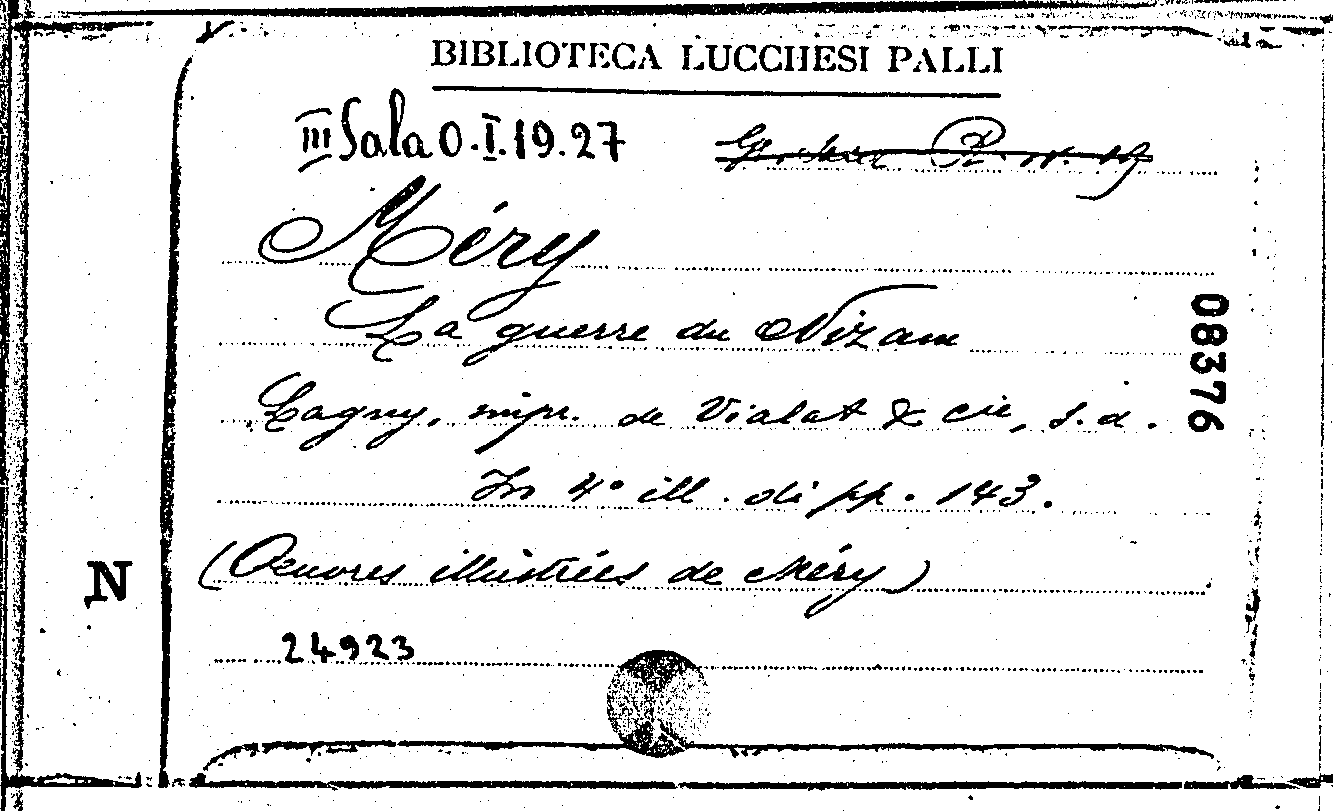 BIBLIOTECA LUCCHESI PALLI
III Sala O.I.19.27
Méry
La guerre du Nizam
08376
Lagny, impr. de Vialat & cie, s.d.
In 4° ill. di pp. 143.
N
(Oeuvres illustrées de Méry)
24923